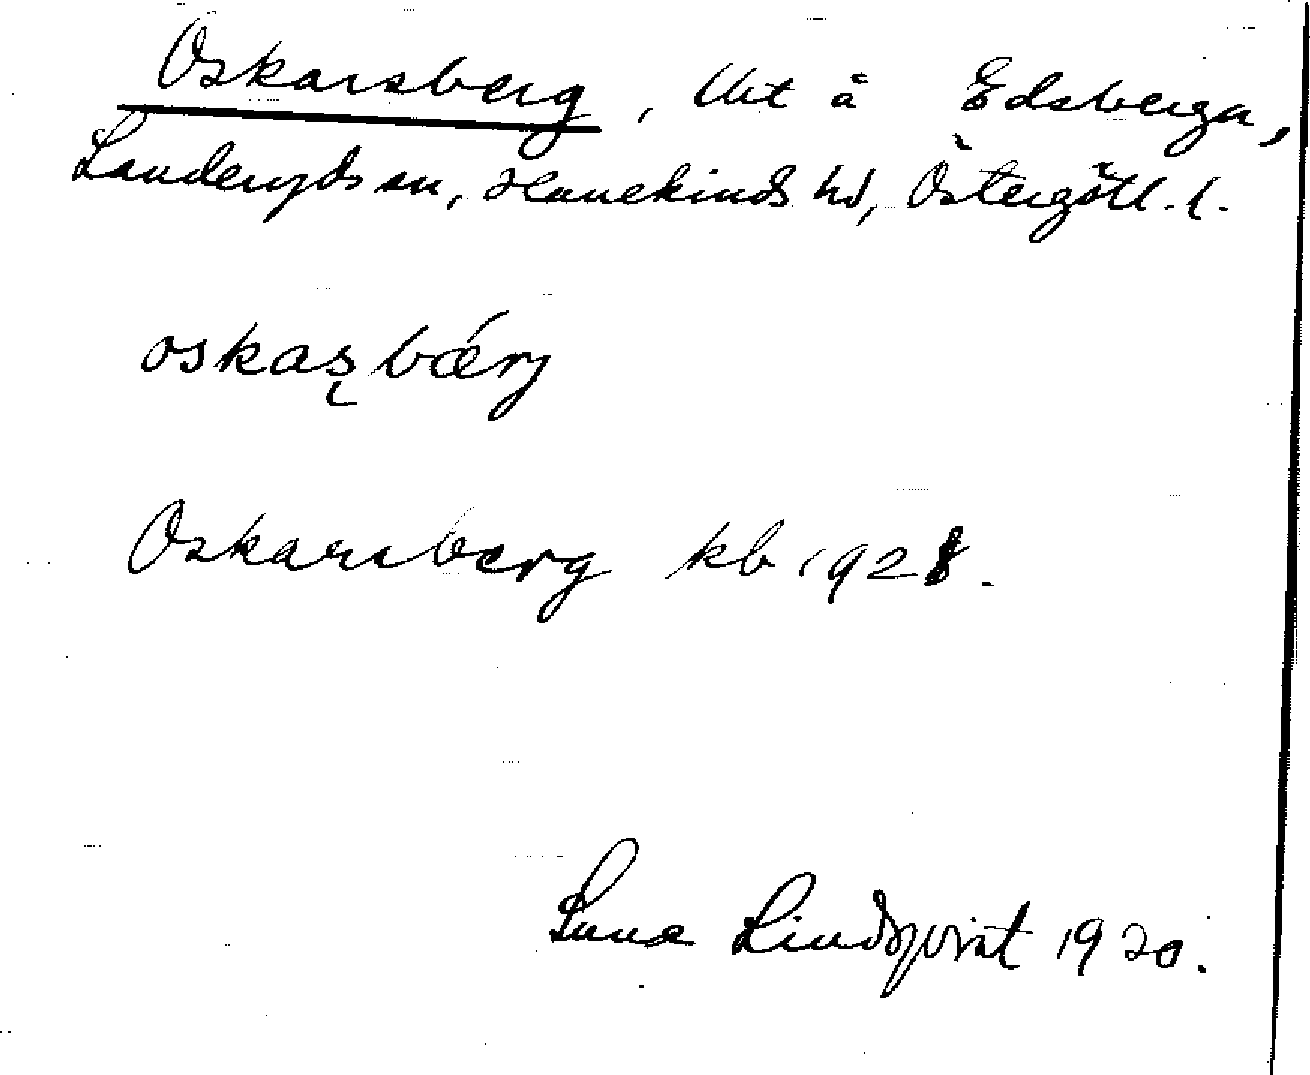 Oskarsberg, lht å Edsberga,
Landeryds sn, Hanekinds hd, Östergötl. l.
oskaʂbǽrj
Oskarsberg kb 1928.
Suna Lindqvist 1920.